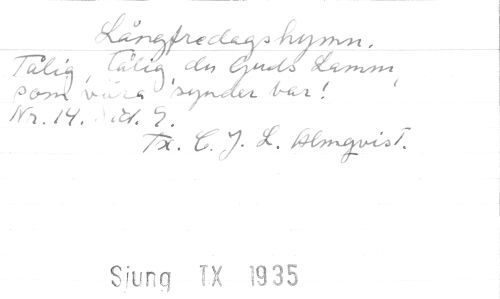 Långfredagshymn.
Tålig, tålig du Guds Lamm,
som våra synder bar!
Nr. 14. 9.
Tx. C. J. L. Almqvist.
Sjung TX 1935